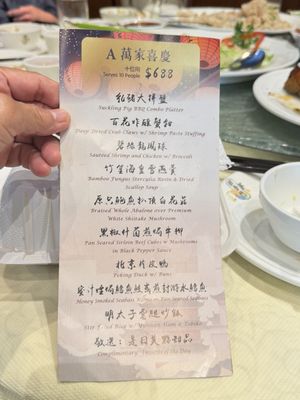 A 萬家喜慶
十位用
Serves 10 People $688
乳豬大拼盤
Suckling Pig BBQ Combo Platter
百花炸釀蟹鉗
Deep Fried Crab Claws w/ Shrimp Paste Stuffing
碧綠龍鳳球
Sauteed Shrimp and Chicken w/ Broccoli
竹笙海皇雪燕羹
Bamboo Fungus Sterculia Resin & Dried
Scallop Soup
原只鮑魚扒頂白花菇
Braised Whole Abalone over Premium
White Shiitake Mushroom
黑椒什菌煎焗牛柳
Pan Seared Sirloin Beef Cubes w Mushrooms
in Black Pepper Sauce
北京片皮鴨
Peking Duck w/ Buns
蜜汁煙焗鱈魚
Honey Smoked Seabass
Pan Seared Seabass
明太子
Stir Fried Rice w/
敬送：是日美點甜品
Complimentary Desserts of the Day